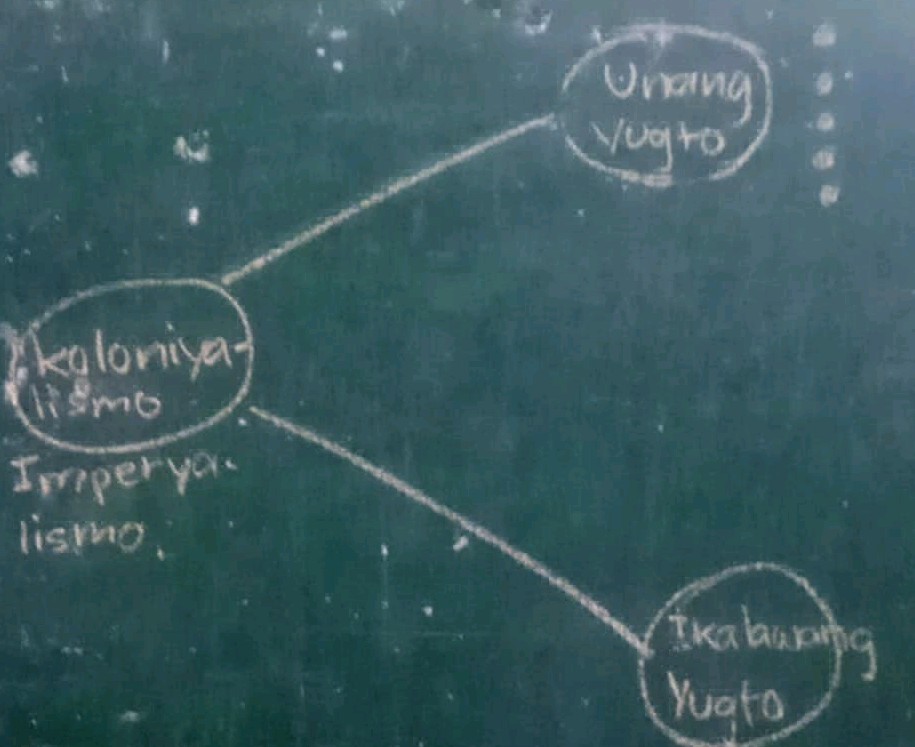 Unang
Yugto
koloniya-
lismo
Imperya-
lismo.
Ikalawang
Yugto